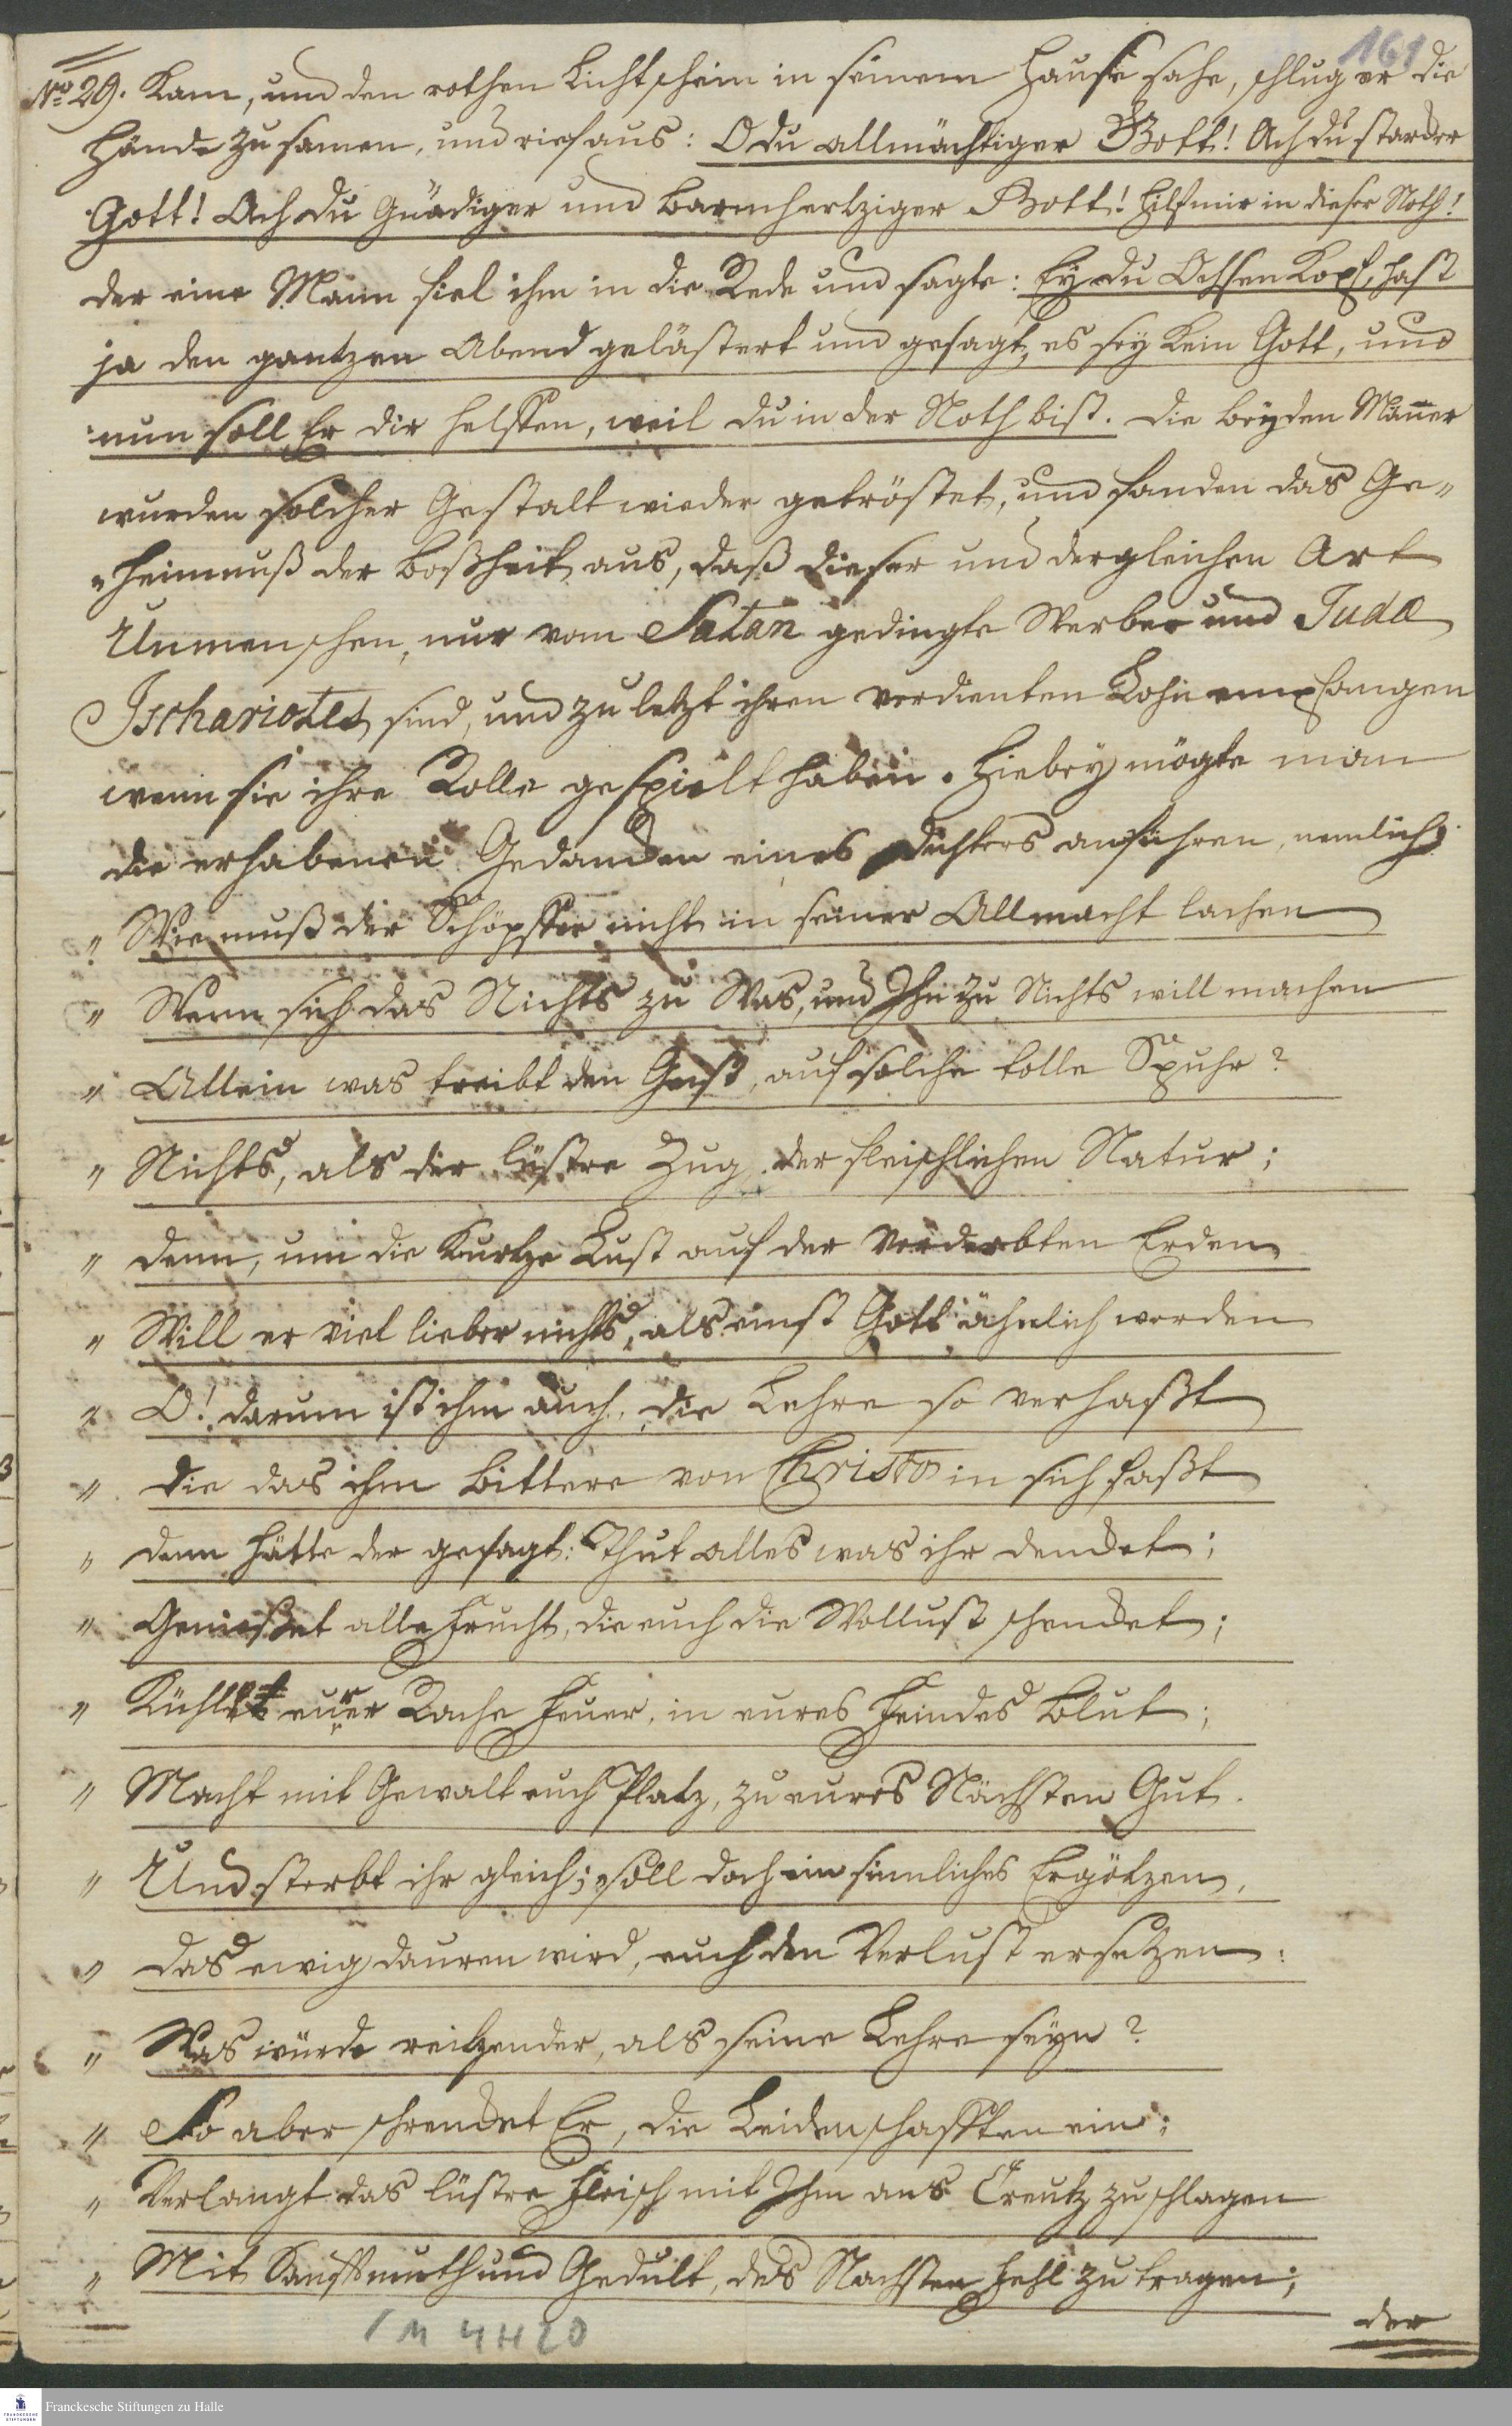 161
No 29. Kam, und den rothen Lichtschein in seinem Hause sahe, schlug er die
Hände zusamen, und rief aus: O du allmächtiger Gott! Ach du starcker
Gott! Ach du Gnädiger und Barmhertziger Gott! Hilf mir in dieser Noth!
der eine Mann fiel ihm in die Rede und sagte: Ey du Ochsen Kopf, hast
ja den gantzen Abend gelästert und gesagt, es sey kein Gott, und
nun soll Er dir helffen, weil du in der Noth bist. Die beyden Mañer
wurden solcher Gestalt wieder getröstet, und fanden das Ge„
„heimnuß der Boßheit aus, daß dieser und dergleichen Art
Unmenschen, nur vom Satan gedingte Werber und Judæ
Ischariotes sind, und zuletzt ihren verdienten Lohn empfangen
wenn sie ihre Rolle gespielt haben. Hiebey mögte man
die erhabenen Gedancken eines Dichters anführen, nemlich:
„ Wie muß der Schöpffer nicht in seiner Allmacht lachen
„ Wenn sich das Nichts zu Was, und Ihn zu Nichts will machen
„ Allein was treibt den Geist, auf solche tolle Spuhr?
„ Nichts, als der lüstre Zug der fleischlichen Natur;
„ denn, um die Kurtze Lust auf der Verderbten Erden
„ Will er viel lieber nichts, als einst Gott ähnlich werden
„ O! darum ist ihm auch, die Lehre so verhaßt
„ die das ihm Bittere von Christo in sich faßt
„ denn hätte der gesagt: Thut alles was ihr dencket;
„ Genießet alle Frucht, die euch die Wollust schencket;
„ Kühlt eurer Rache Feuer, in eures Feindes Blut;
„ Macht mit Gewalt euch Platz, zu eures Nächsten Gut.
„ Und sterbt ihr gleich; soll doch ein sinnliches Ergötzen,
„ das ewig dauren wird, euch den Verlust ersetzen:
„ Was würde reitzender, als seine Lehre seyn?
„ So aber schrencket Er, die Leidenschafften ein;
„ Verlangt das lüstre Fleisch mit Ihm ans Creutz zu schlagen
„ Mit Sanfftmuth und Gedult, des Nächsten Fehl zu tragen;
der
1 M 4 H 20
Franckesche Stiftungen zu Halle